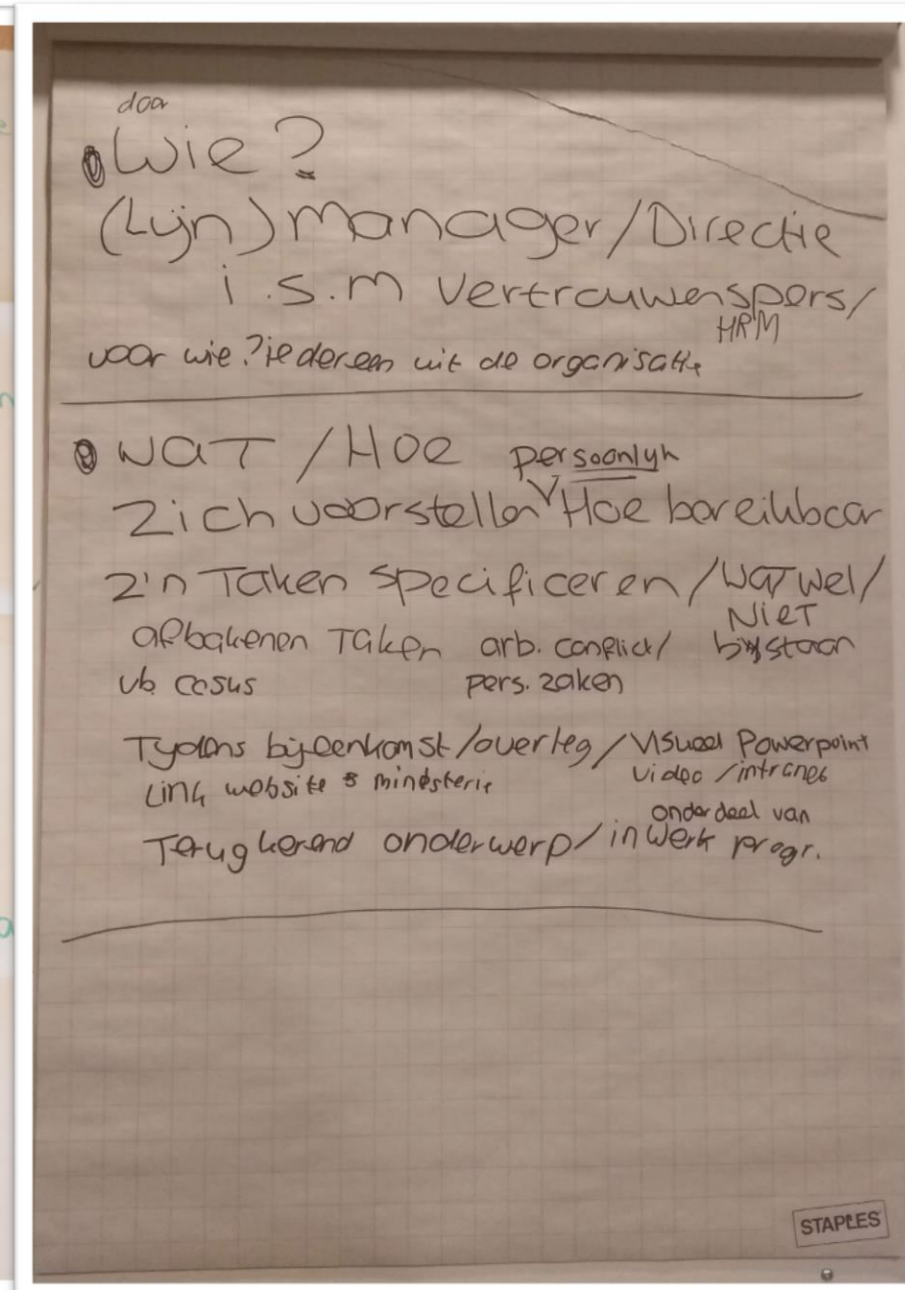 door
Wie?
(Lijn) Manager/Directie
i.s.m vertrouwenspers/
HRM
voor wie? iedereen uit de organisatie
WAT / HOE persoonlijk
Zich voorstellen Hoe bereikbaar
z'n Taken specificeren / WAT wel /
NIET
afbakenen Taken arb. conflict/ bijstaan
vb. casus pers. zaken
Tijdens bijeenkomst/overleg / Visueel Powerpoint
Link website ministerie video / intranet
onderdeel van
Terugkerend onderwerp / inwerk progr.
STAPLES